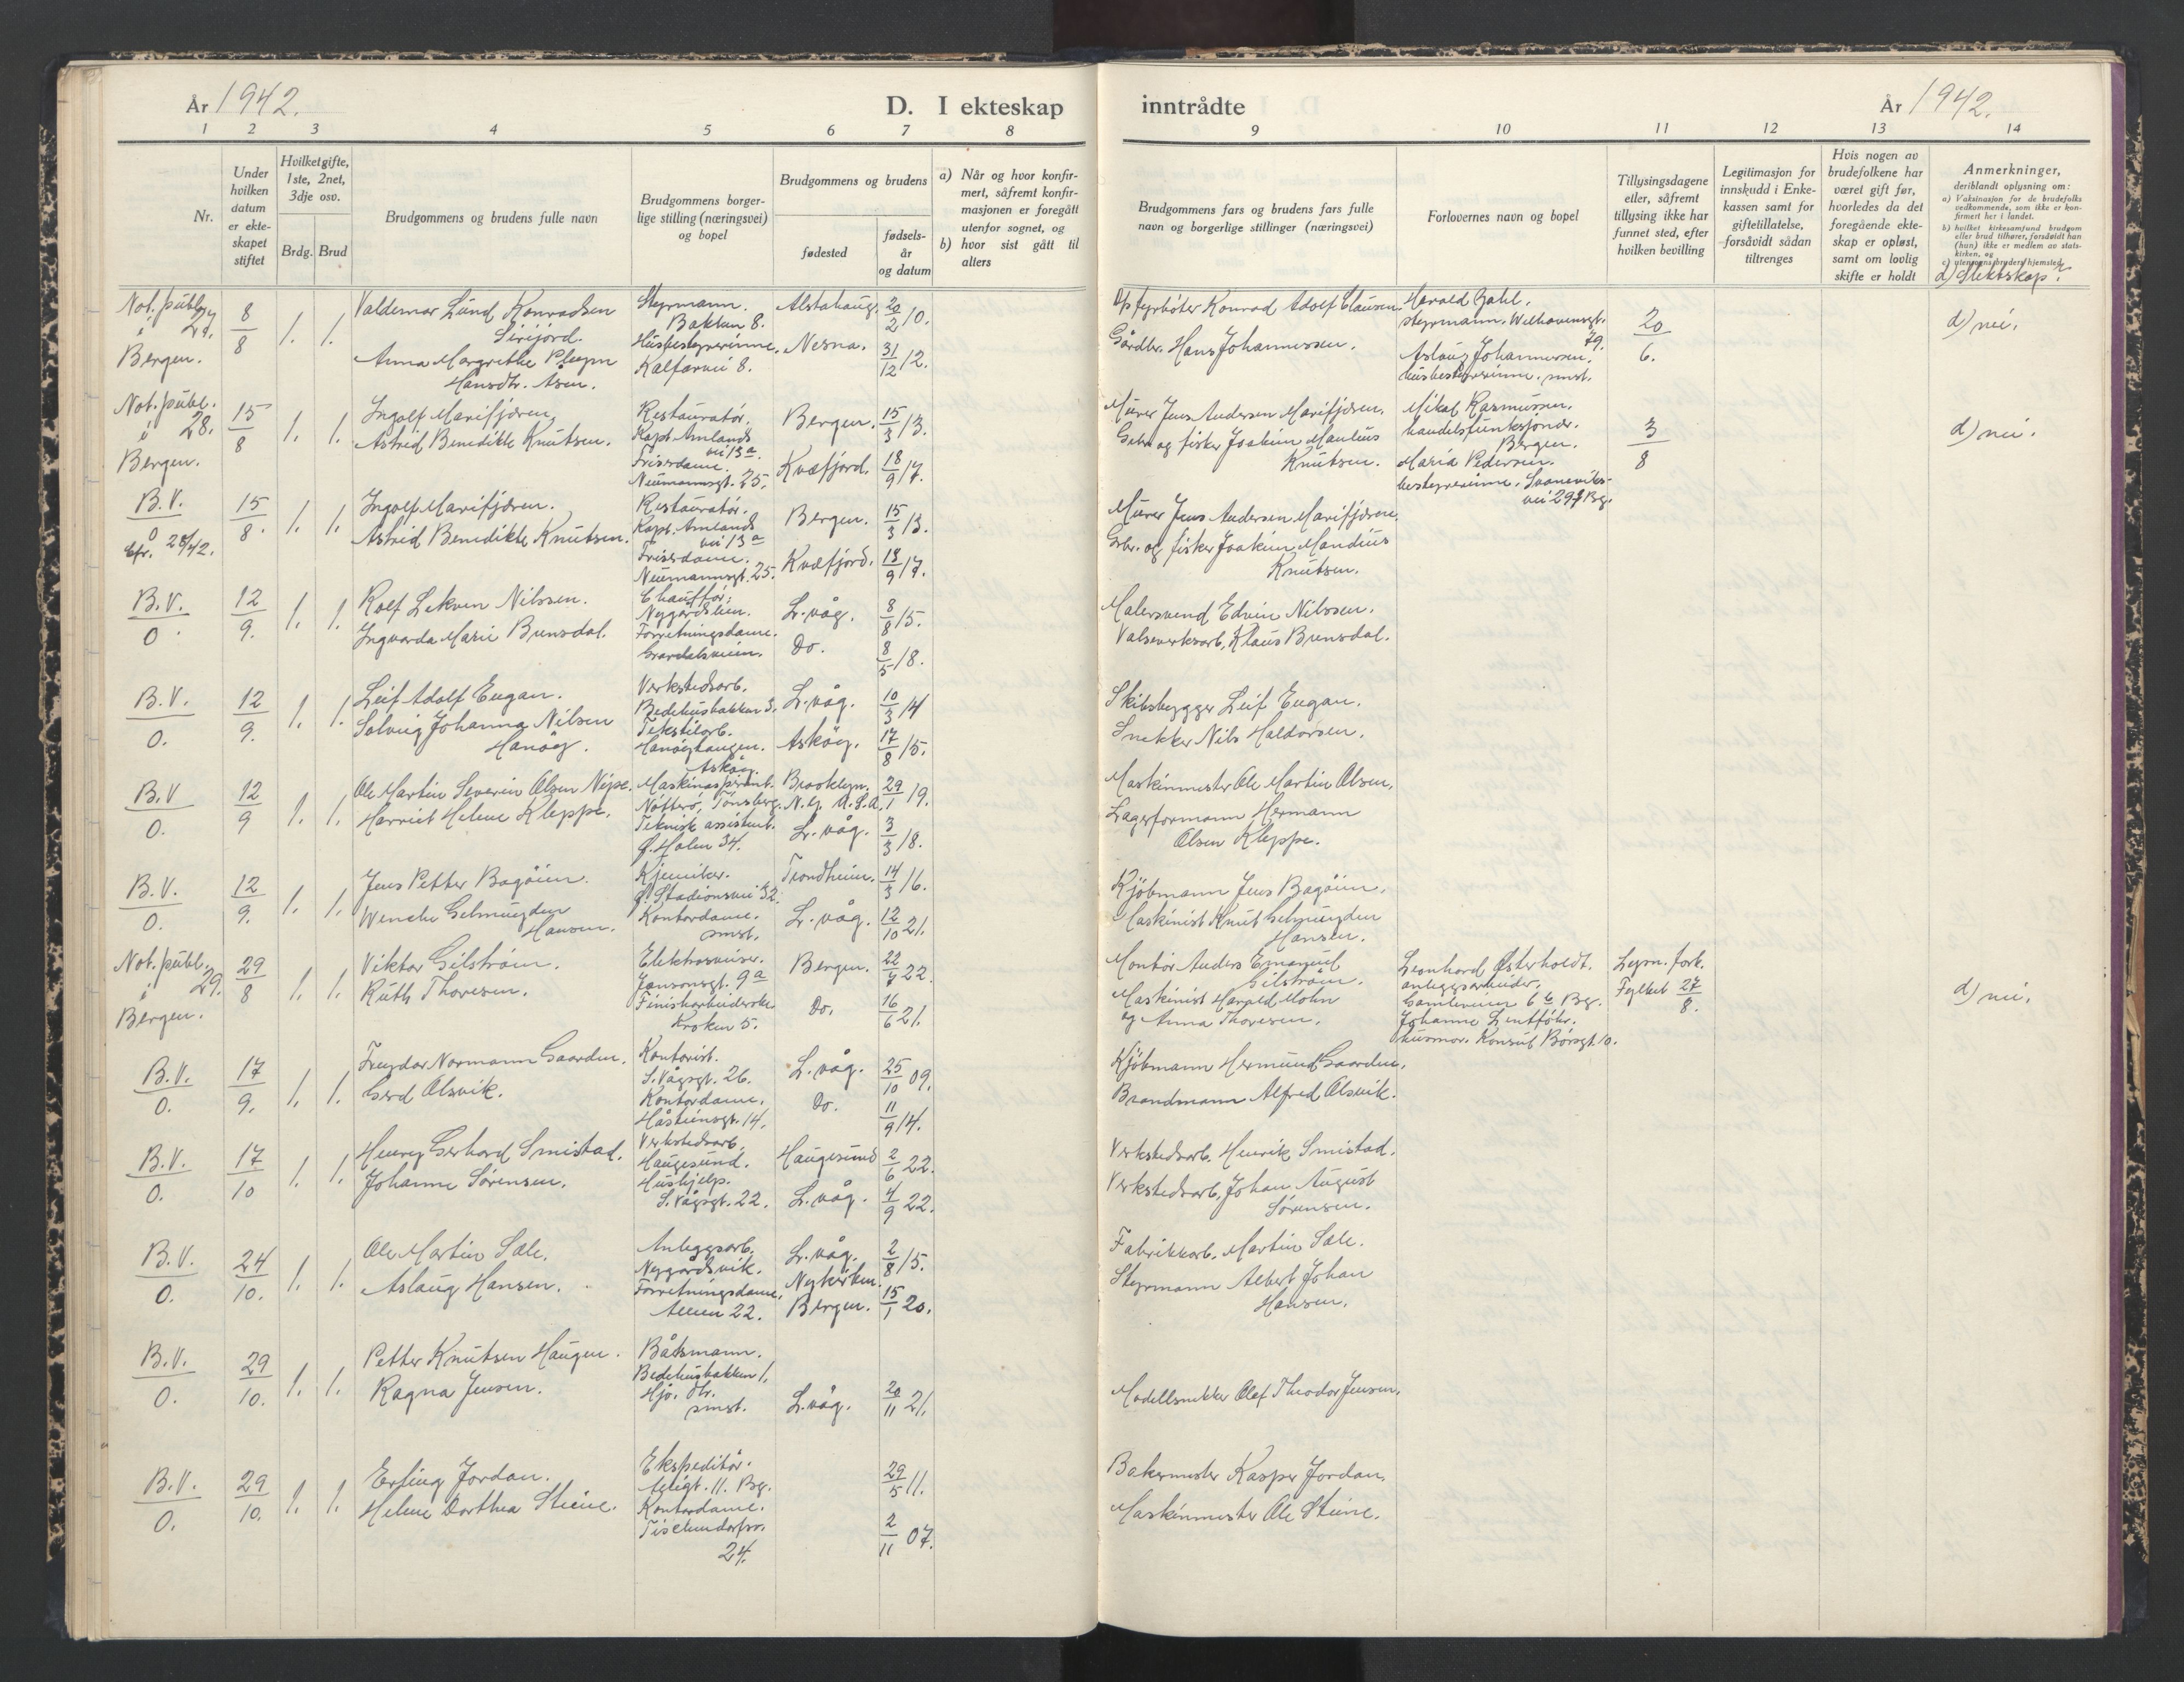 År 1942.
D. I ekteskap
inntrådte
År 1942.
1 2 3 4 5 6 7 8 9 10 11 12 13 14
Nr.
Under hvilken datum er ekteskapet stiftet
Hvilket gifte, 1ste, 2net, 3dje osv.
Brdg. Brud
Brudgommens og brudens fulle navn
Brudgommens borger-
lige stilling (næringsvei)
og bopel
Brudgommens og brudens
fødested
fødsels-
år
og datum
a) Når og hvor konfir-
mert, såfremt konfir-
masjonen er foregått
utenfor sognet, og
b) hvor sist gått til
alters
Brudgommens fars og brudens fars fulle
navn og borgerlige stillinger (næringsvei)
Forlovernes navn og bopel
Tillysingsdagene
eller, såfremt
tillysing ikke har
funnet sted, efter
hvilken bevilling
Legitimasjon for
innskudd i Enke-
kassen samt for
giftetillatelse,
forsåvidt sådan
tiltrenges
Hvis nogen av
brudefolkene har
været gift før,
hvorledes da det
foregående ekte-
skap er opløst,
samt om lovlig
skifte er holdt
Anmerkninger,
deriblandt oplysning om:
a) Vaksinasjon for de brudefolks
vedkommende, som ikke er kon-
firmert her i landet.
b) hvilket kirkesamfund brudgom
eller brud tilhører, forsåvidt han
(hun) ikke er medlem av stats-
kirken, og
d) Slektskap?
Not. publ. 27. i Bergen.
8/8 1. 1.
Valdemar Lund Konradsen
Sirijord.
Anna Margrethe
Hansdtr. Åsen.
Styrmann.
Bakken 8.
Husbestyrerinne.
Kalfarvei 8.
Alstahaug. 20/2 10.
Nesna. 31/12 12.
Op. fyrbøter Konrad Adolf Clausen.
Gårdbr. Hans Johannessen.
Harald Zahl,
styrmann. Welhavensgt. 79.
Aslaug Johannessen,
husbestyrerinne. smst.
20/6.
d) nei.
Not. publ. 28. i Bergen.
15/8 1. 1.
Ingolf Marifjæren,
Astrid Benedikte Knutsen.
Restauratør.
Kapt. Amlands
vei 13a.
Frisérdame.
Neumannsgt. 25.
Bergen. 15/3 13.
Kvæfjord. 18/9 17.
Murer Jens Andersen Marifjæren.
Gbr. og fisker Joakim Manlius
Knutsen.
Mikal Rasmussen.
handelsfunksjonær.
Bergen.
Maria Pedersen.
bestyrerinne.
3/8
d) nei.
B.V. 0 Cfr. 28/42.
15/8. 1. 1.
Ingolf Marifjæren.
Astrid Benedikte Knutsen.
Restauratør.
Kapt. Amlands
vei 13a
Frisérdame.
Neumannsgt. 25.
Bergen. 15/3 13.
Kvæfjord. 18/9 17.
Murer Jens Andersen Marifjæren.
Gbr. og fisker Joakim Mandius
Knutsen.
B.V. 0.
12/9. 1. 1.
Rolf Lekven Nilssen.
Ingvarda Marie Brunsdal.
Chauffør.
Nygårdslien.
Forretningsdame.
Gravdalsveien.
L. våg. 8/8 15.
Do. 8/5 18.
Malersvend Edvin Nilssen.
Valseverksarb. Klaus Brunsdal.
B.V. 0.
12/9. 1. 1.
Leif Adolf Eugan.
Solveig Johanna Nilsen
Hanøy.
Verkstedsarb.
Bedehusbakken 3.
Tekstilarb.
Hanøyhaugen.
Askøy.
L. våg. 10/3 14
Askøy. 17/8 15.
Skibsbygger Leif Eugan.
Snekker Nils Haldorsen.
B.V. 0.
12/9 1. 1.
Ole Martin Severin Olsen Nipe.
Harriet Helene Kleppe.
Maskinaspirant.
Nøtterö, Tönsberg.
Teknisk assistent.
Ø. Holen 34.
Brooklyn. N.Y. U.S.A. 29/1 19.
L. våg. 3/3 18.
Maskinmester Ole Martin Olsen.
Lagerformann Hermann
Olsen Kleppe.
B.V. 0.
12/9. 1. 1.
Jens Petter Bagöien.
Wenche Gelmuyden
Hansen.
Kjemiker.
Ø. Stadionsvei 32.
Kontordame.
smst.
Trondheim. 14/3 16.
L. våg. 12/10 21.
Kjöbmann Jens Bagöien.
Maskinist Knut Gelmuyden
Hansen.
Not. publ. 29. i Bergen.
29/8 1. 1.
Viktor Gilström.
Ruth Thoresen.
Elektrosveiser.
Jansonsgt. 9a
Finiskarbeiderske
Kroken 5.
Bergen. 22/7 22.
Do. 16/6 21.
Montör Anders Emanuel
Gilström.
Maskinist Harald Mohn
og Anna Thoresen.
Leonhard Østerholdt.
anleggsarbeider.
Gamleveien 6b Bg.
Johanne
husmor. Konsul Börsgt. 10.
Lysn. fork.
Fylket 27/8.
d) nei.
B.V. 0.
17/9. 1. 1.
Freydar Normann Gaarden.
Gerd Olsvik.
Kontorist.
S. Vågsgt. 26.
Kontordame.
Håsteinsgt. 14.
L. våg. 25/10 09.
Do. 11/9 14.
Kjöbmann Hermund Gaarden.
Brandmann Alfred Olsvik.
B.V. 0.
17/10 1. 1.
Henry Gerhard Smistad.
Johanne Sørensen.
Verkstedsarb.
Haugesund.
Hushjelp.
S. Vågsgt. 22.
Haugesund 2/6 22.
L. våg. 4/9 22.
Verkstedsarb. Henrik Smistad.
Verkstedsarb. Johan August
Sørensen.
B.V. 0.
24/10. 1. 1.
Ole Martin Sæle.
Aslaug Hansen.
Anleggsarb.
Nygårdsvik.
Forretningsdame.
Alleen 22.
L. våg. 2/8 15.
Nykirken.
Bergen. 15/1 20.
Fabrikkarb. Martin Sæle.
Styrmann Albert Johan
Hansen.
B.V. 0.
29/10. 1. 1.
Petter Knutsen Haugen.
Ragna Jensen.
Båtsmann.
Bedehusbakken 1.
Hjv. dtr.
smst.
L. våg. 20/11 21.
Modellsnekker Olaf Theodor Jensen.
B.V. 0.
29/10. 1. 1.
Erling Jordan.
Helene Dorthea Steine.
Ekspeditör.
11. Bg.
Kontordame.
24.
29/5 11.
2/11 07.
Bakermester Kasper Jordan.
Maskinmester Ole Steine.